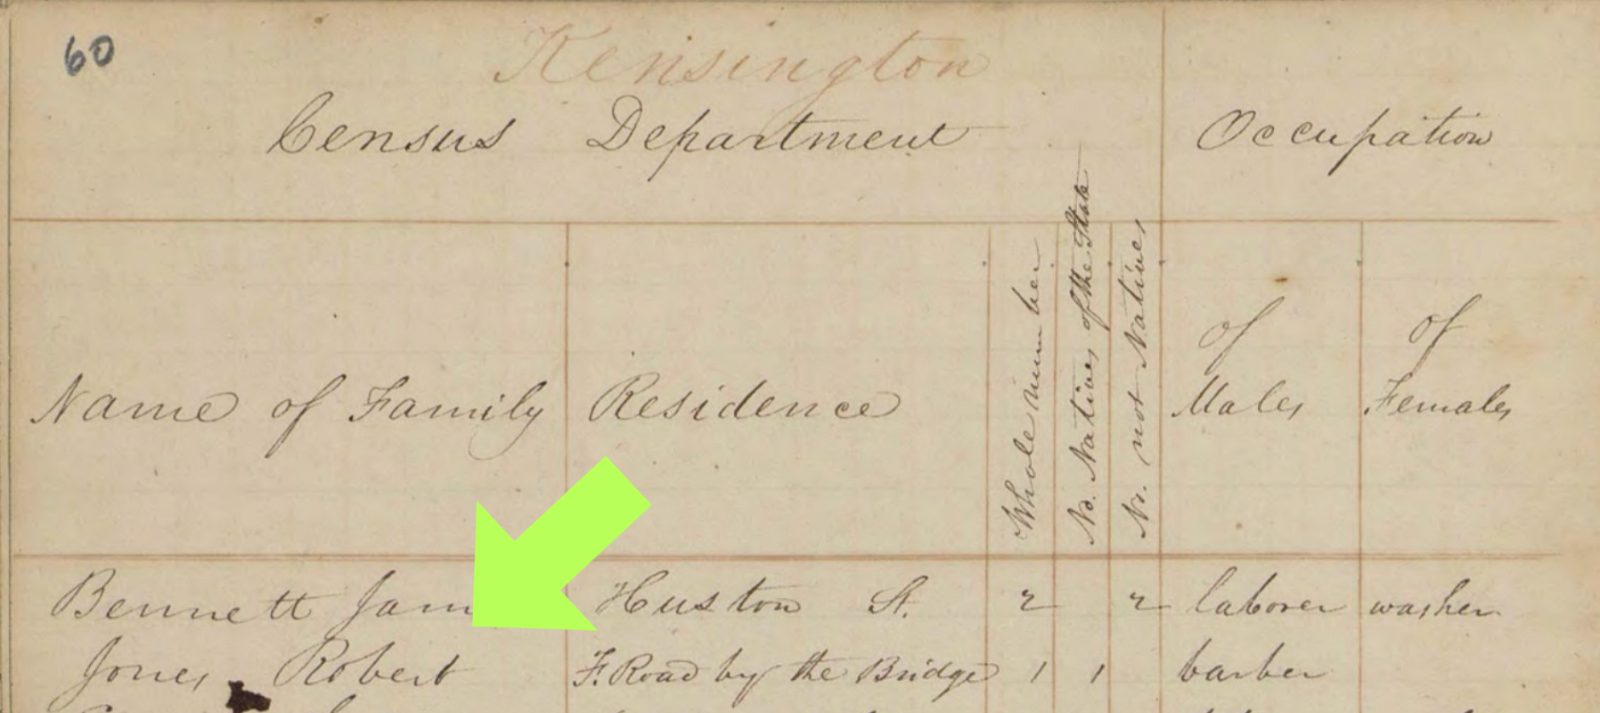 60
Kensington
Census Department
Occupation
Name of Family
Residence
Whole number
No. Natives of the State
No. not Natives
of Males
of Females
Bennett Huston St. 2 2 laborer washer
Jones Robert F. Road by the Bridge 1 1 barber